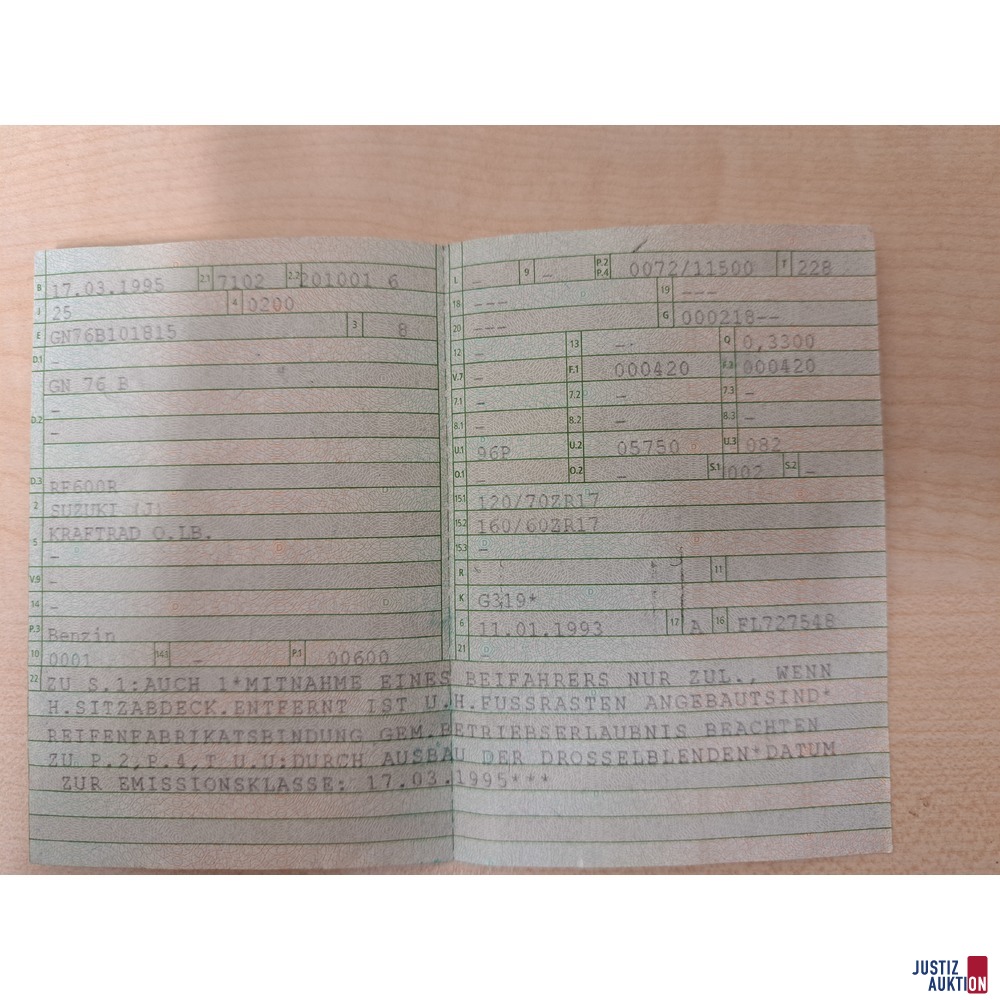 B 17.03.1995 2.1 7102 2.2 201001 6
J 25 4 0200
E GN76B101815 3 8
D.1 -
GN 76 B
D.2 -
-
D.3 RF600R
2 SUZUKI (J)
5 KRAFTRAD O.LB.
-
V.9 -
14 -
P.3 Benzin
10 0001 14.1 - P.1 00600
L - 9 - P.2 P.4 0072/11500 T 228
18 --- 19 ---
20 --- G 000218--
12 - 13 -- Q 0,3300
V.7 - F.1 000420 F.2 000420
7.1 - 7.2 - 7.3 -
8.1 - 8.2 - 8.3 -
U.1 96P U.2 05750 U.3 082
O.1 - O.2 - S.1 002 S.2 -
15.1 120/70ZR17
15.2 160/60ZR17
15.3 -
R 11
K G319*
6 11.01.1993 17 A 16 FL727548
21 -
22 ZU S.1:AUCH 1*MITNAHME EINES BEIFAHRERS NUR ZUL., WENN
H.SITZABDECK.ENTFERNT IST U.H.FUSSRASTEN ANGEBAUTSIND*
REIFENFABRIKATSBINDUNG GEM.BETRIEBSERLAUBNIS BEACHTEN
ZU P.2,P.4,T U.U:DURCH AUSBAU DER DROSSELBLENDEN*DATUM
ZUR EMISSIONSKLASSE: 17.03.1995***
JUSTIZ
AUKTION